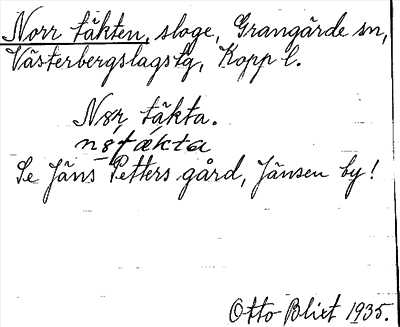 Norr täkten, sloge, Grangärde sn,
Västerbergslagstg, Kopp l.
Nør täkta.
nǿʈækta
Se Jäns Petters gård, Jänsen by!
Otto Blixt 1935.